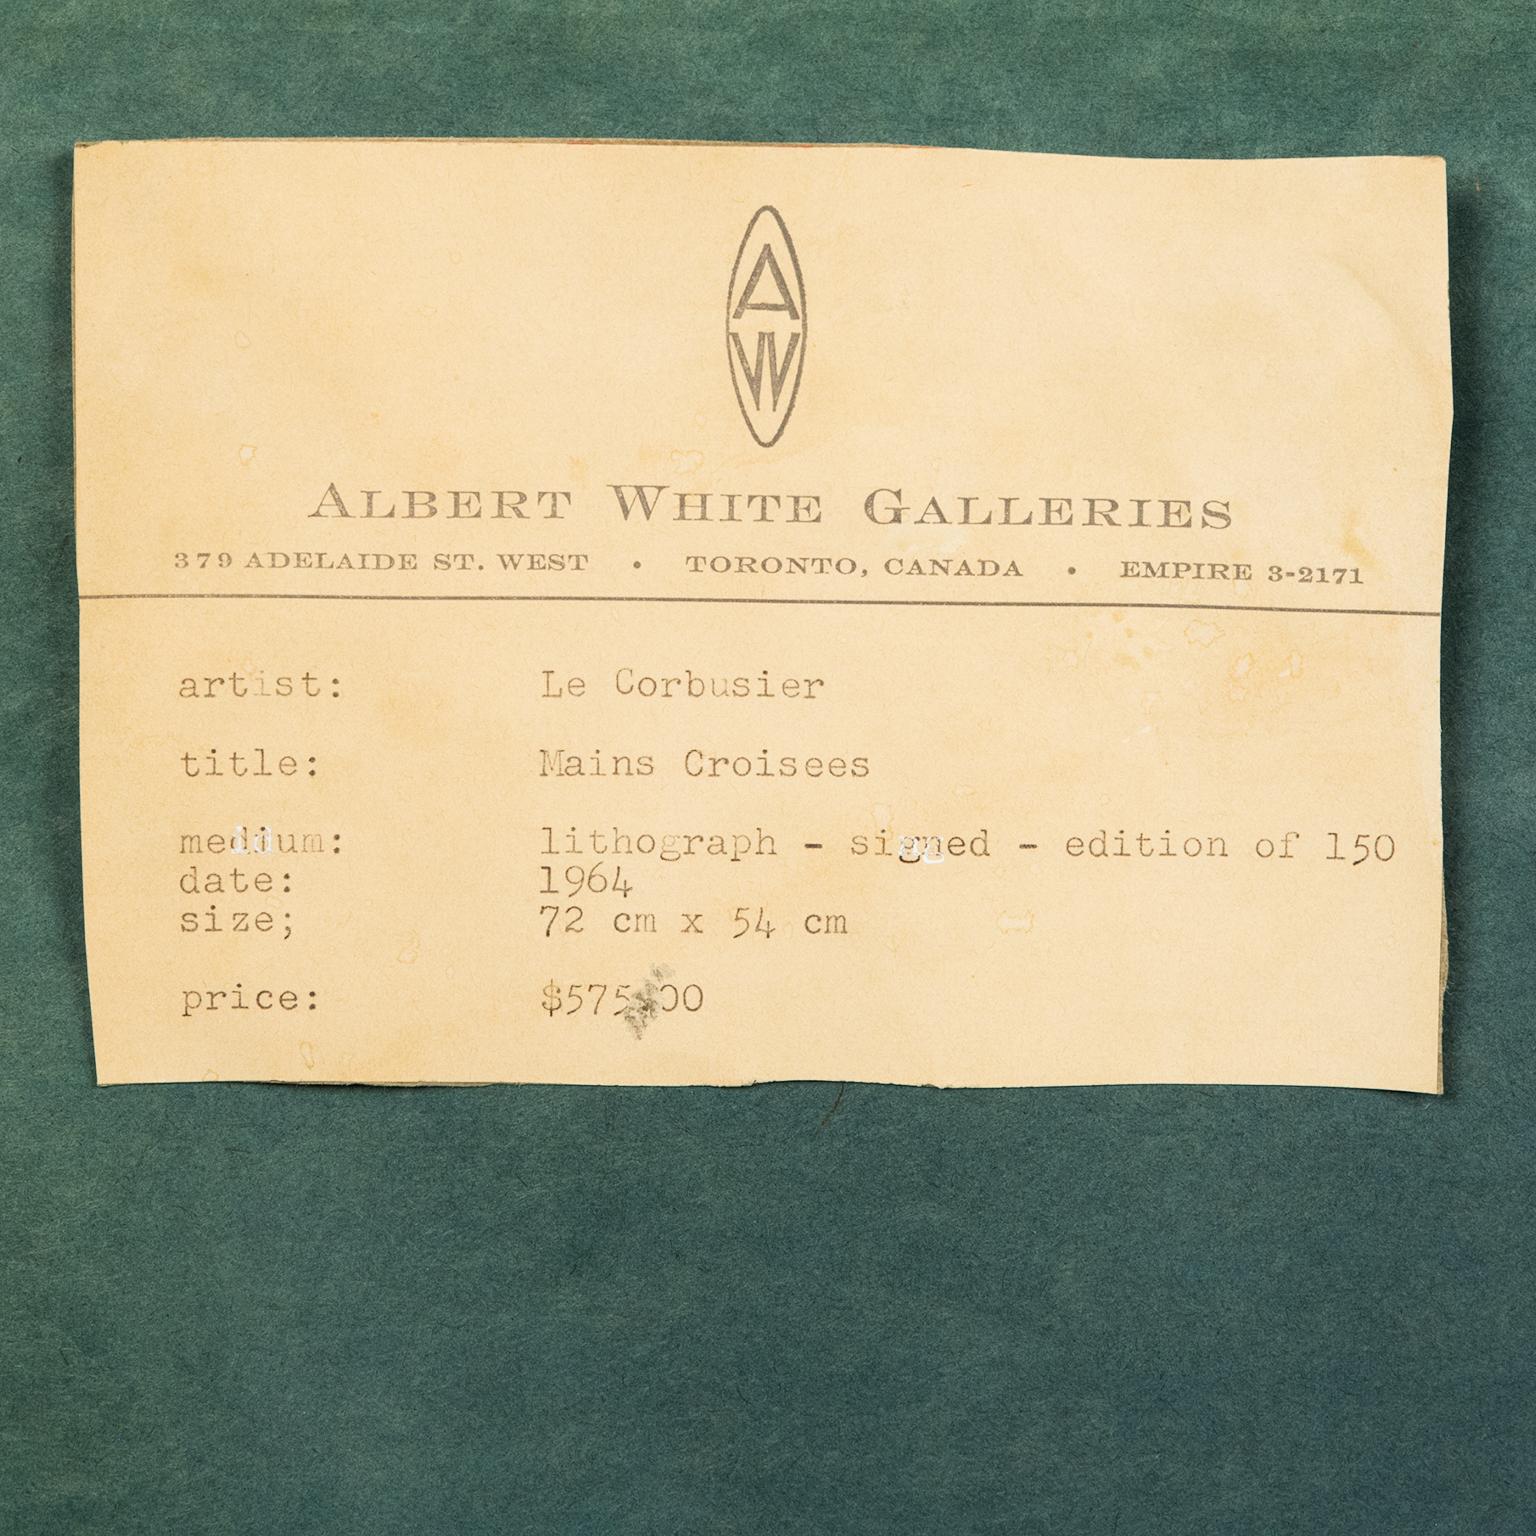 A
W
ALBERT WHITE GALLERIES
379 ADELAIDE ST. WEST • TORONTO, CANADA • EMPIRE 3-2171
artist: Le Corbusier
title: Mains Croisees
medium: lithograph - signed - edition of 150
date: 1964
size; 72 cm x 54 cm
price: $575.00